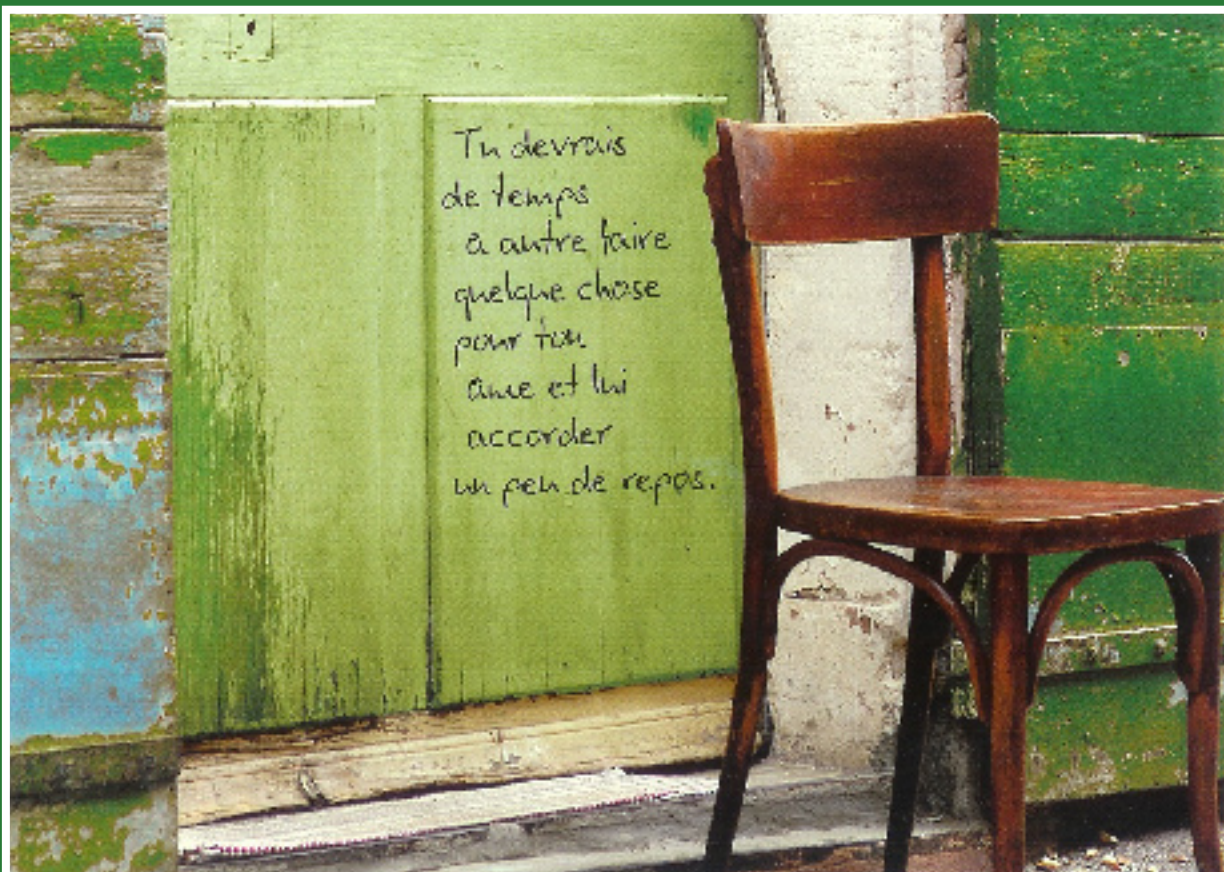 Tu devrais
de temps
a autre faire
quelque chose
pour ton
ame et lui
accorder
un peu de repos.